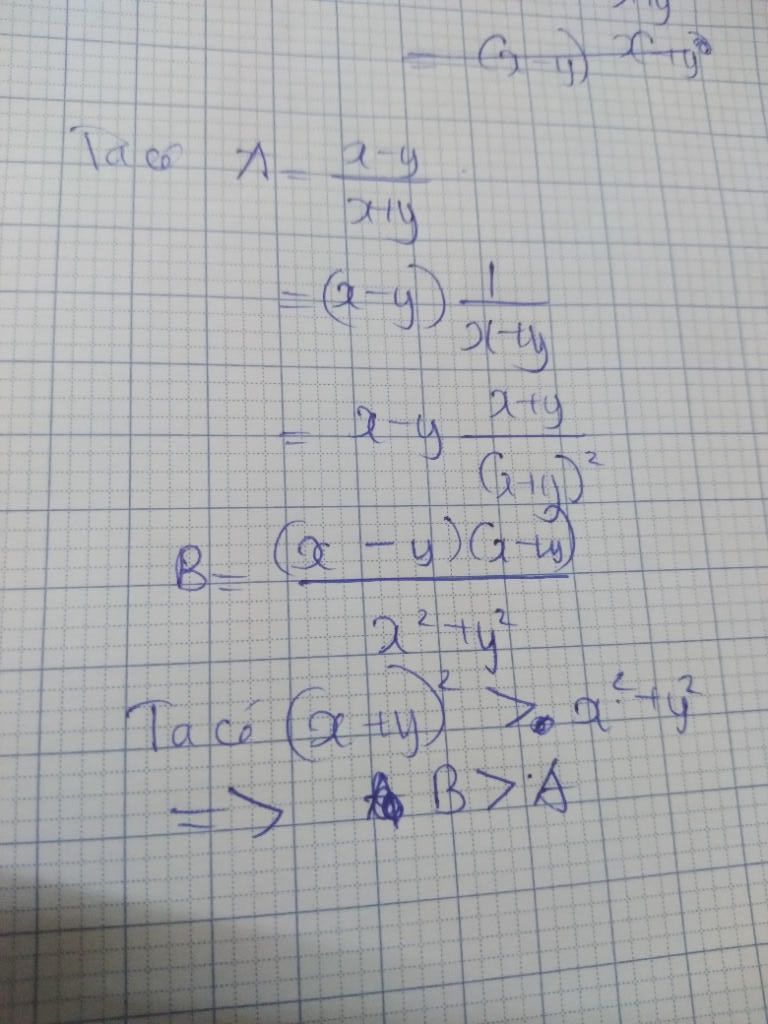 x+y
= (x-y) x+y
Ta có A = \frac{x-y}{x+y}
= (x-y) \frac{1}{x+y}
= x-y \frac{x+y}{(x+y)^2}
B = \frac{(x - y)(x+y)}{x^2+y^2}
Ta có (x+y)^2 > x^2+y^2
=> B > A